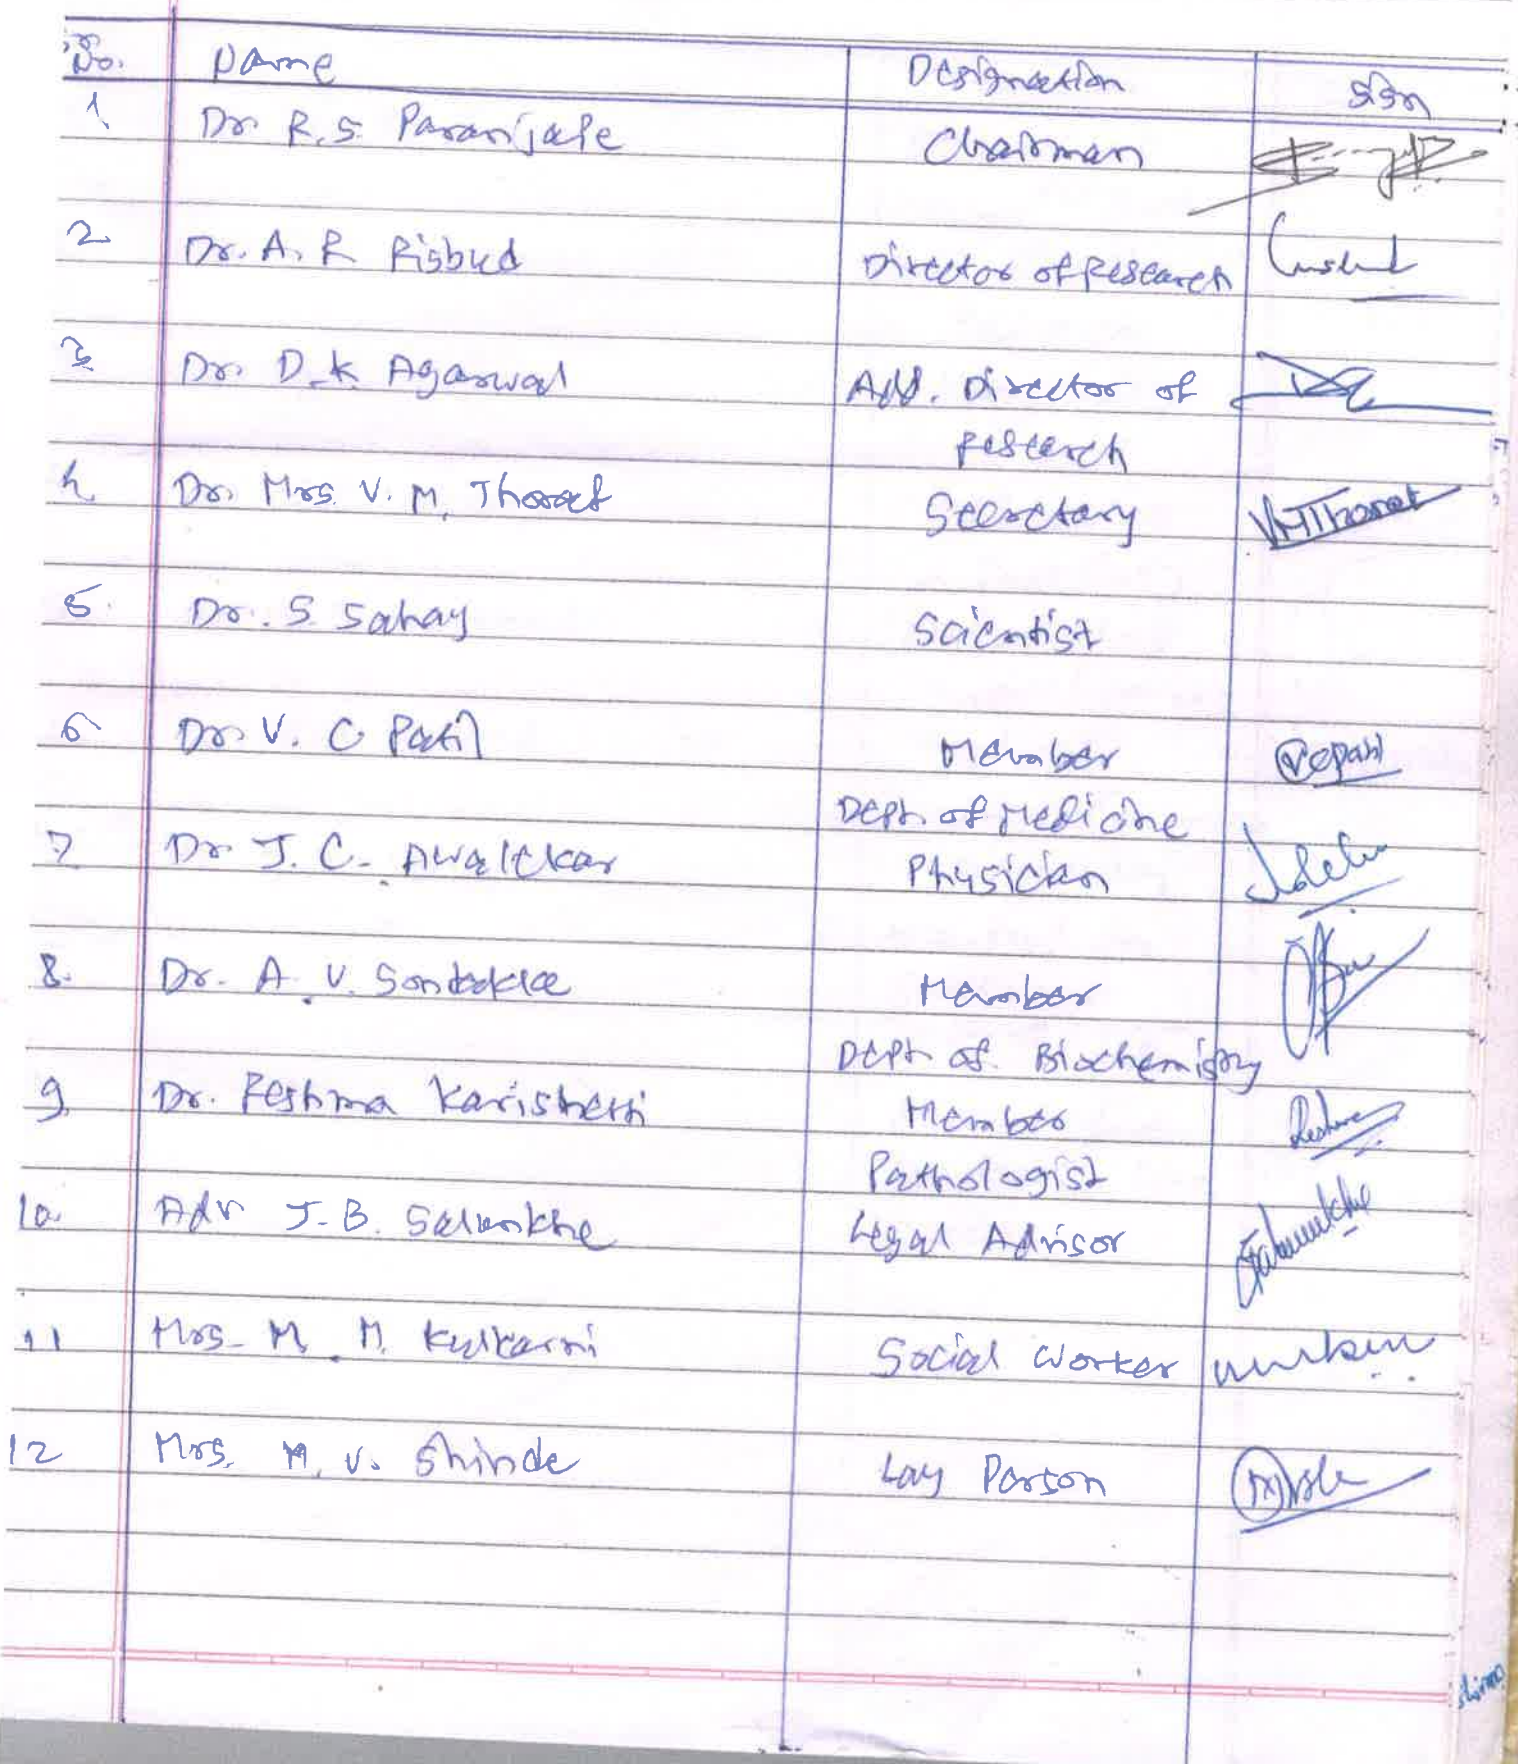 Sr. No. Name Designation Sign
1 Dr. R.S. Paranjape Chairman
2 Dr. A. R Risbud Director of Research
3 Dr. D.K Agarwal Add. Director of
Research
4 Dr. Mrs. V. M. Thorat Secretary VMThorat
5. Dr. S. Sahay Scientist
6 Dr. V. C Patil Member vcpatil
Dept. of Medicine
7 Dr J. C. Awalekar Physician
8. Dr. A. V. Sontakke Member
Dept of Biochemistry
9. Dr. Reshma Karishetti Member Reshma
Pathologist
10. Adv J.B. Salunkhe Legal Advisor Salunkhe
11 Mrs. M. M. Kulkarni Social Worker
12 Mrs. M. V. Shinde Lay Person